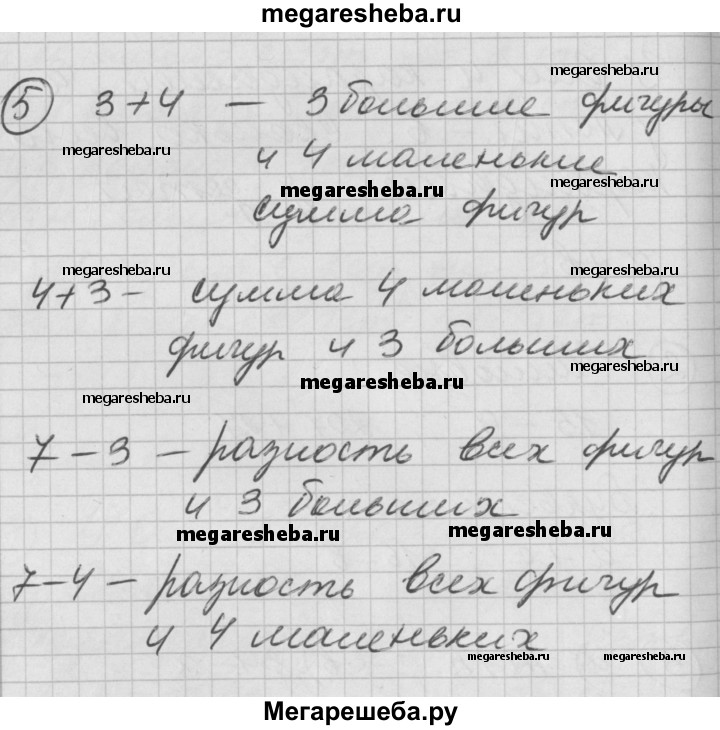 megaresheba.ru
megaresheba.ru
5 3+4 — 3 большие фигуры
megaresheba.ru
и 4 маленькие
megaresheba.ru
megaresheba.ru
сумма фигур
megaresheba.ru
megaresheba.ru
4+3 – сумма 4 маленьких
фигур и 3 больших
megaresheba.ru
megaresheba.ru
megaresheba.ru
7 – 3 – разность всех фигур
и 3 больших
megaresheba.ru
megaresheba.ru
7–4 – разность всех фигур
и 4 маленьких
megaresheba.ru
megaresheba.ru
Мегарешеба.ру